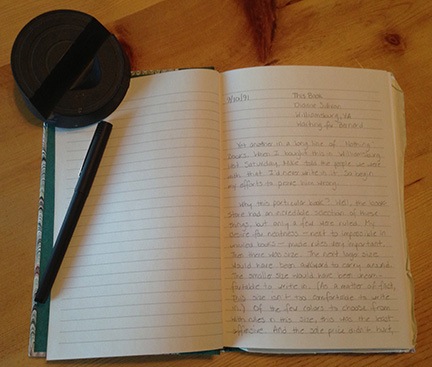 This Book
Williamsburg, VA
Waiting for
Yet another in a long line of "Nothing
Books." When I bought this in Williamsburg
last Saturday, Mike told the people we were
with, that I'd never write in it. So begin
my efforts to prove him wrong.
Why this particular book? Well, the book
store had an incredible selection of these
things, but only a few were ruled. My
desire for neatness - next to impossible in
unlined books - made rules very important.
Then there was size. The next larger size
would have been awkward to carry around.
The smaller size would have been
to write in. (As a matter of fact,
this size isn't too comfortable to write
in.) Of the few colors to choose from
with rules in this size, this was the least
offensive. And the sale price didn't hurt,